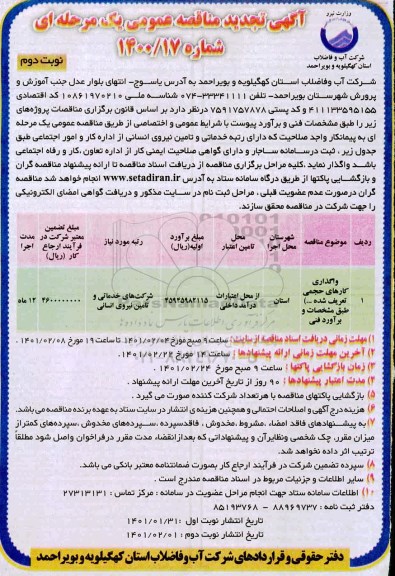 وزارت نیرو
شرکت آب و فاضلاب
استان کهگیلویه و بویراحمد
آگهی تجدید مناقصه عمومی یک مرحله ای
شماره ۱۴۰۰/۱۷
نوبت دوم
شرکت آب وفاضلاب استان کهگیلویه و بویراحمد به آدرس یاسوج- انتهای بلوار عدل جنب آموزش و
پرورش شهرستان بویراحمد- تلفن ۳۳۳۴۱۱۱۱-۰۷۴ شناسه ملی ۱۰۸۶۱۹۷۰۲۱۰ کد اقتصادی
۴۱۱۱۳۳۵۹۵۱۵۵ و کد پستی ۷۵۹۱۷۵۷۸۷۸ درنظر دارد بر اساس قانون برگزاری مناقصات پروژه‌های
زیر را طبق مشخصات فنی و برآورد پیوست با شرایط عمومی و اختصاصی از طریق مناقصه عمومی یک مرحله
ای به پیمانکار واجد صلاحیت که دارای رتبه خدماتی و تامین نیروی انسانی از اداره کار و امور اجتماعی طبق
جدول زیر ، ثبت درسامانه ساجار و دارای گواهی صلاحیت ایمنی کار از اداره تعاون ،کار و رفاه اجتماعی
باشد واگذار نماید .کلیه مراحل برگزاری مناقصه از دریافت اسناد مناقصه تا ارائه پیشنهاد مناقصه گران
و بازگشایی پاکتها از طریق درگاه سامانه ستاد به آدرس www.setadiran.ir انجام خواهد شد مناقصه
گران درصورت عدم عضویت قبلی ، مراحل ثبت نام در سایت مذکور و دریافت گواهی امضای الکترونیکی
را جهت شرکت در مناقصه محقق سازند.
ردیف موضوع مناقصه شهرستان محل اجرا محل تامین اعتبار مبلغ برآورد اولیه(ریال) رتبه مورد نیاز مبلغ تضمین معتبر شرکت در فرآیند ارجاع کار (ریال) مدت اجرا
۱ واگذاری کارهای حجمی تعریف شده (...) طبق مشخصات و برآورد فنی استان از محل اعتبارات درآمد داخلی شرکت‌های خدماتی و تامین نیروی انسانی ۱۲ ماه
۱) مهلت زمانی دریافت اسناد مناقصه از سایت: ساعت ۹ صبح مورخ ۱۴۰۱/۰۲/۰۴ تا ساعت ۱۹ مورخ ۱۴۰۱/۰۲/۰۸ .
۲) آخرین مهلت زمانی ارائه پیشنهادها : ساعت ۱۴ مورخ ۱۴۰۱/۰۲/۲۲.
۳) زمان بازگشایی پاکتها : ساعت ۹ صبح مورخ ۱۴۰۱/۰۲/۲۴ .
۴) مدت اعتبار پیشنهادها : ۹۰ روز از تاریخ آخرین مهلت ارائه پیشنهاد .
۵) بازگشایی پاکتهای مناقصه با هرتعداد شرکت کننده صورت می گیرد .
۶) هزینه درج آگهی و اصلاحات احتمالی و همچنین هزینه ی انتشار در سایت ستاد به عهده برنده مناقصه می باشد.
۷) به پیشنهادهای فاقد امضاء ، مشروط ،مخدوش ، فاقدسپرده ،سپرده‌های مخدوش ،سپرده‌های کمتراز
میزان مقرر، چک شخصی ونظایرآن و پیشنهاداتی که بعدازانقضاء مدت مقرر درفراخوان واصل شود مطلقاً
ترتیب اثر داده نخواهد شد.
۸) سپرده تضمین شرکت در فرآیند ارجاع کار بصورت ضمانتنامه معتبر بانکی می باشد.
۹) سایر اطلاعات و جزئیات مربوط در اسناد مناقصه مندرج است .
۱۰) اطلاعات سامانه ستاد جهت انجام مراحل عضویت در سامانه : مرکز تماس : ۲۷۳۱۳۱۳۱
دفتر ثبت نامه : ۸۸۹۶۹۷۳۷ - ۸۵۱۹۳۷۶۸
تاریخ انتشار نوبت اول :۱۴۰۱/۰۱/۳۱
تاریخ انتشار نوبت دوم :۱۴۰۱/۰۲/۰۱
دفتر حقوقی و قراردادهای شرکت آب و فاضلاب استان کهگیلویه و بویراحمد